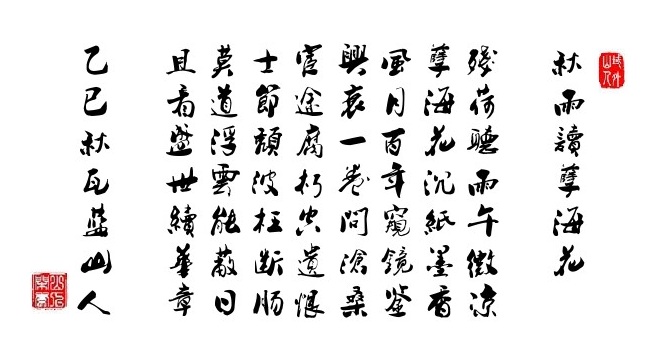 秋雨讀孽海花
殘荷聽雨午微涼
孽海花沉紙墨香
風月百年窺鏡鑒
興衰一卷問滄桑
宦途腐朽空遺恨
士節頹波枉斷腸
莫道浮雲能蔽日
且看盛世續華章
乙巳秋瓦藍山人